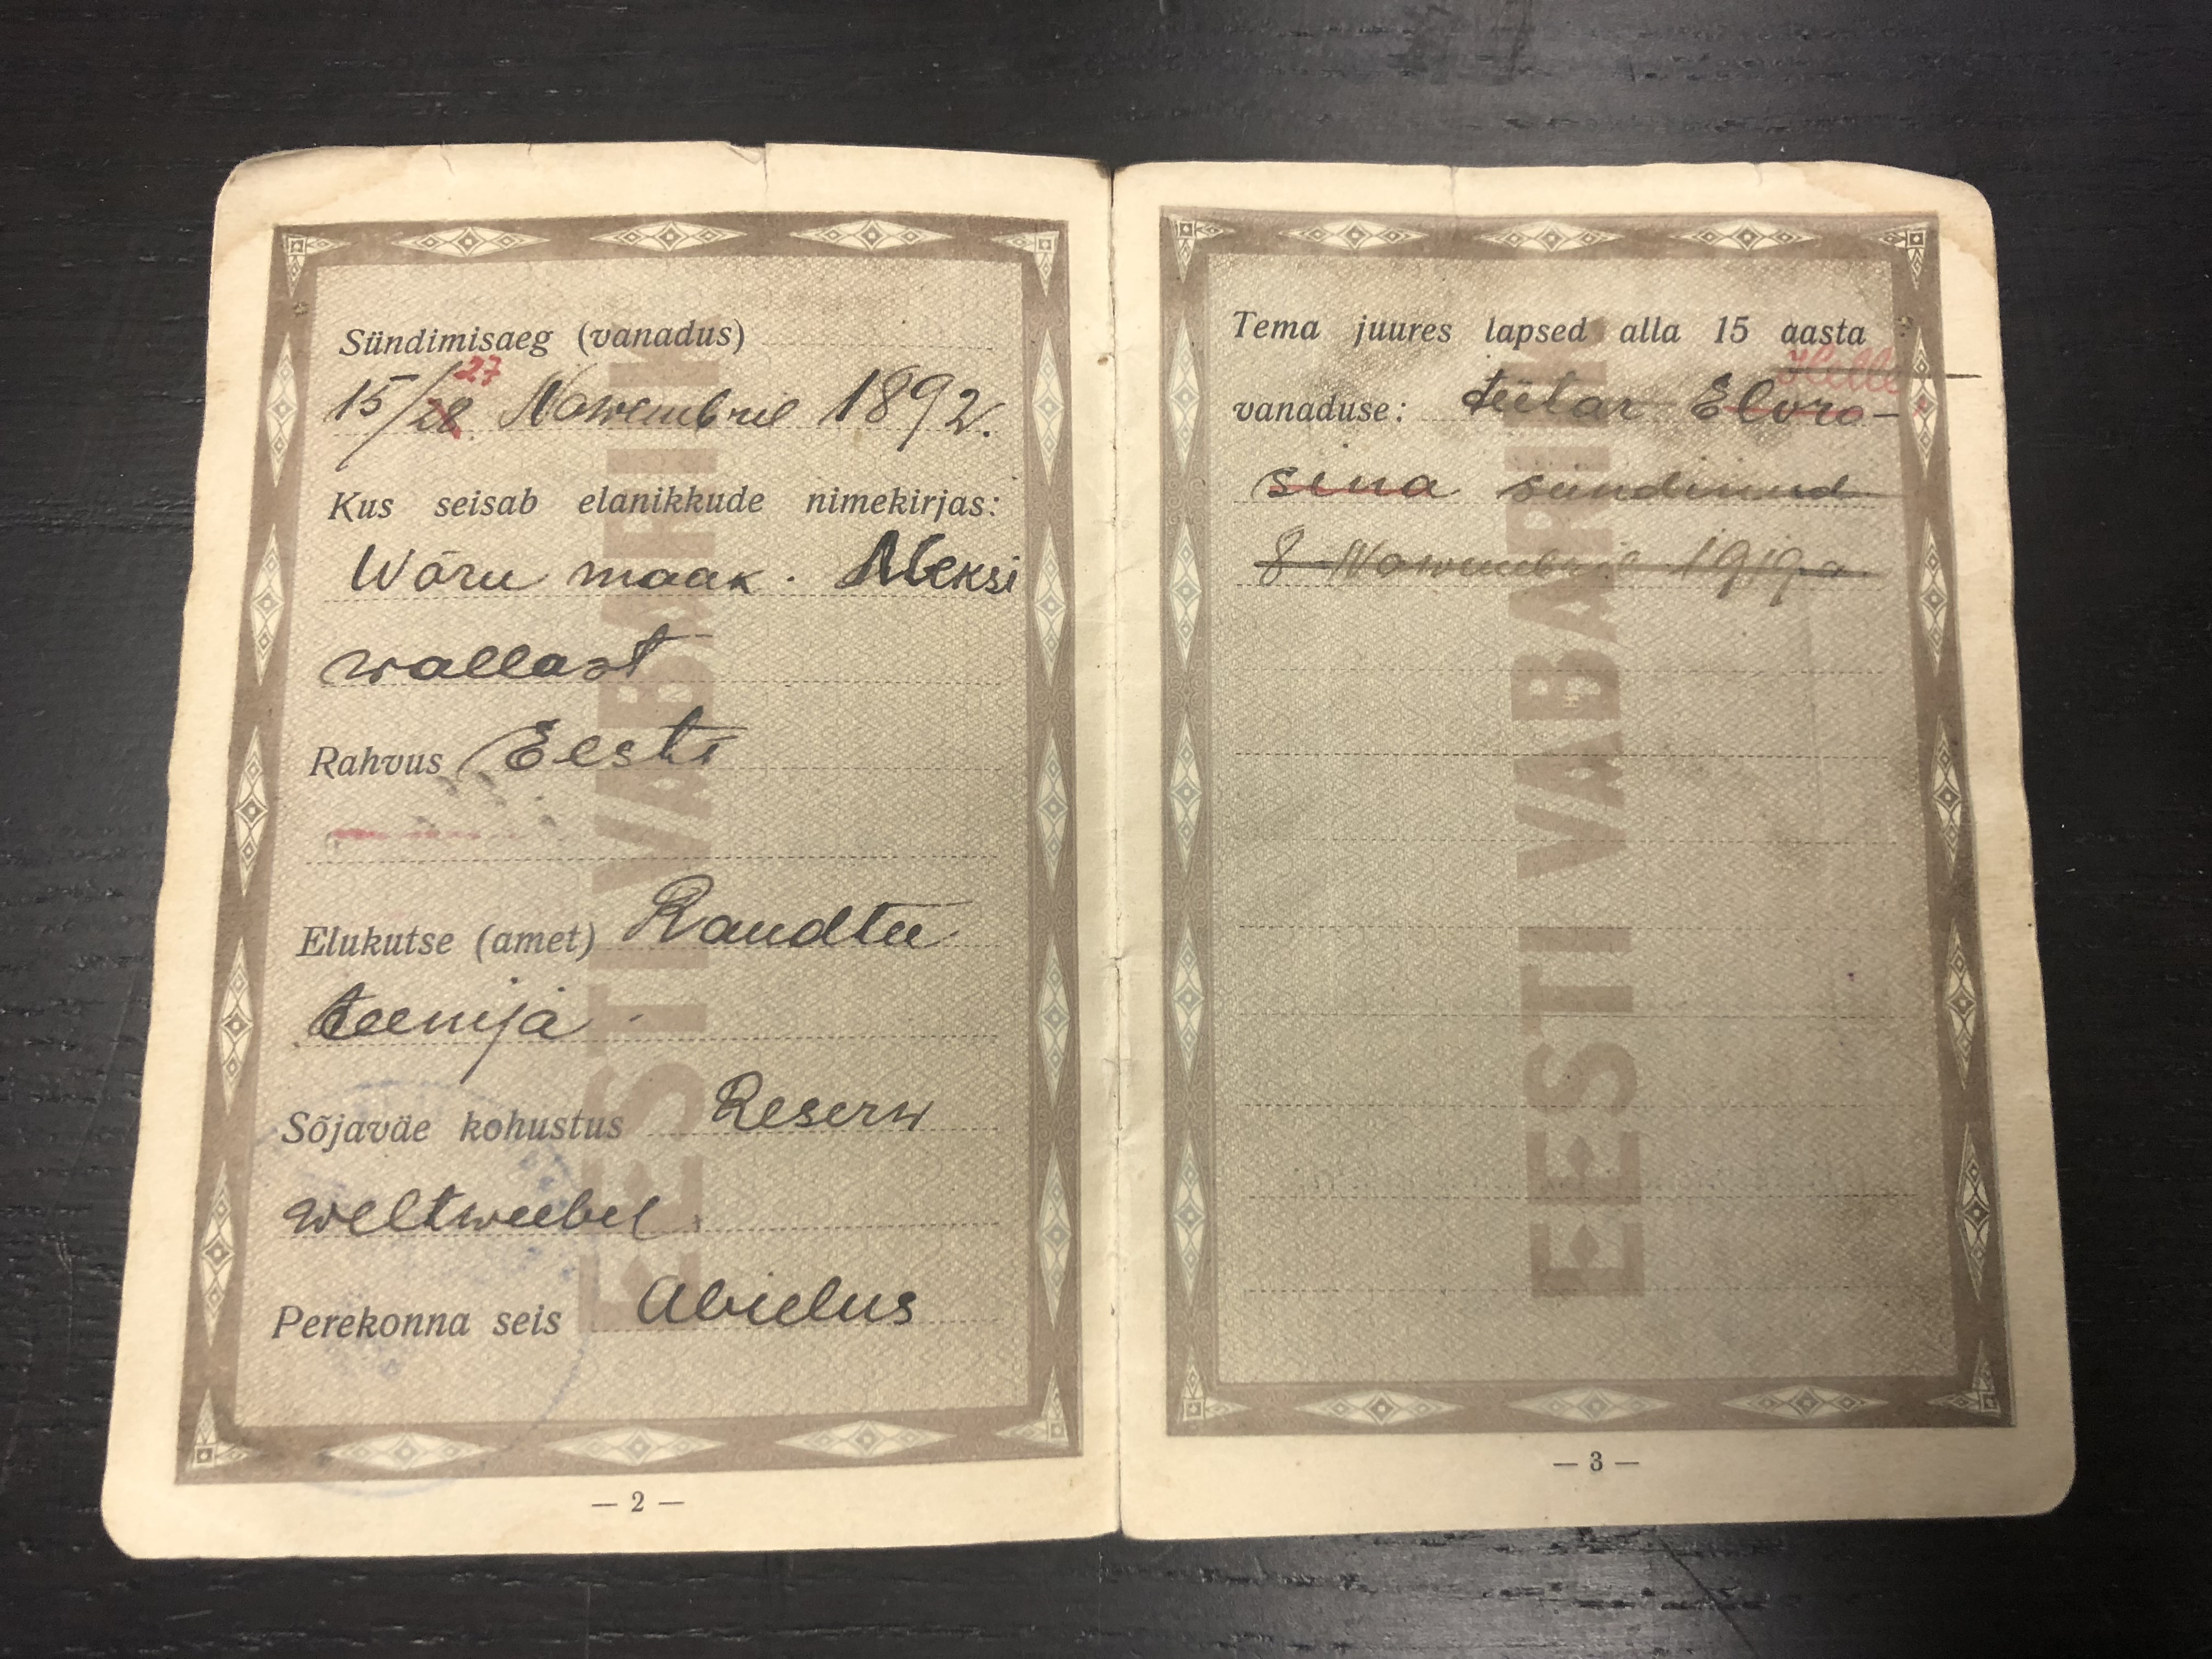 Sündimisaeg (vanadus)
27
15/28. Nowembril 1892.
Kus seisab elanikkude nimekirjas:
Wõru maak. Meksi
wallast
Rahvus Eesti
Elukutse (amet) Raudtee
teenija.
Sõjaväe kohustus Reserw
weltweebel
Perekonna seis Abielus
EESTI VABARIIK
— 2 —
Tema juures lapsed alla 15 aasta
Hella
vanaduse: tütar Elvro-
sina sündinud
8 Nowembril 1919 a.
EESTI VABARIIK
— 3 —